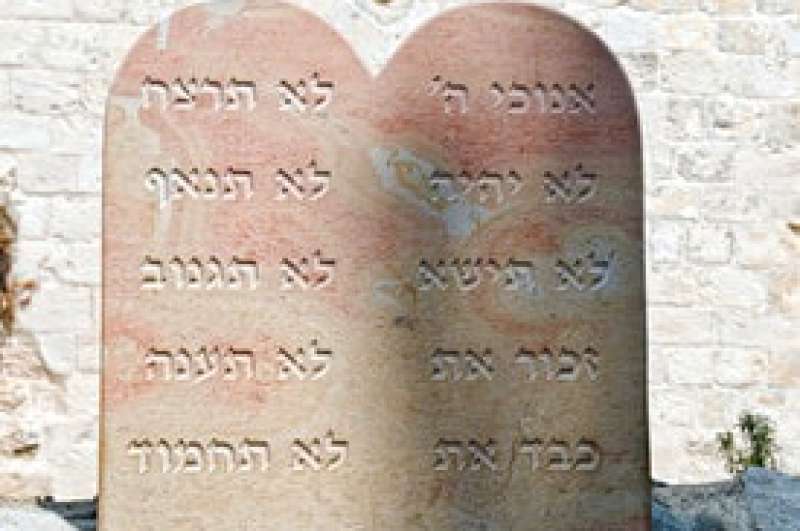 אנוכי ה'
לא יהיה
לא תישא
זכור את
כבד את
לא תרצח
לא תנאף
לא תגנוב
לא תענה
לא תחמוד